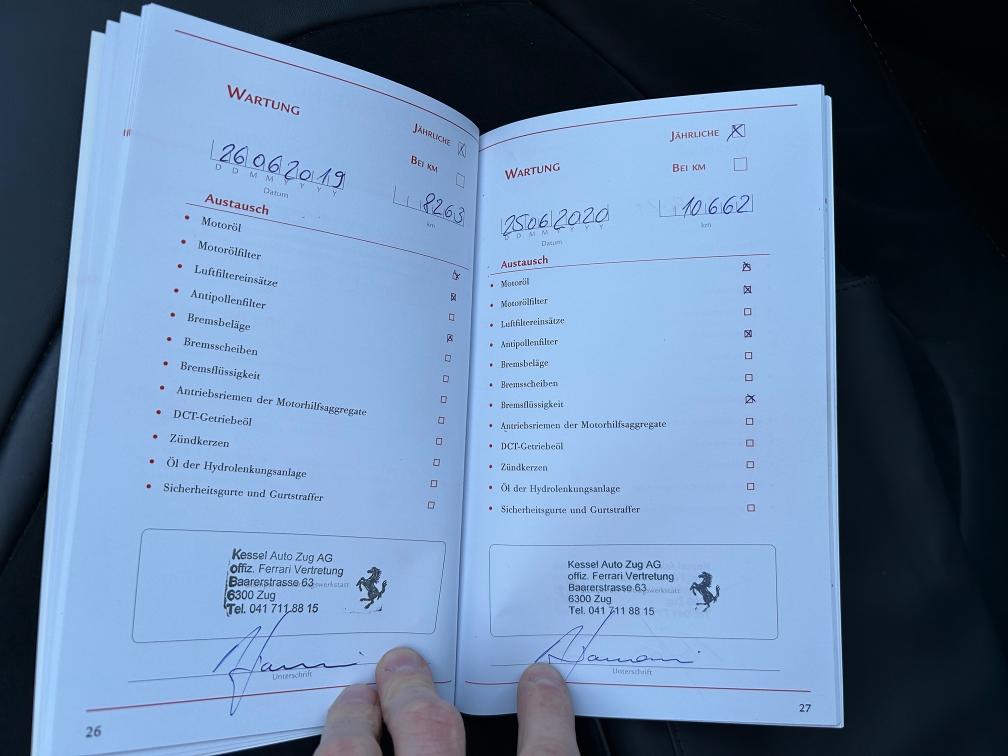 WARTUNG
JÄHRLICHE
BEI KM
26062019
D D M M Y Y Y Y
Datum
8263
km
Austausch
Motoröl
Motorölfilter
Luftfiltereinsätze
Antipollenfilter
Bremsbeläge
Bremsscheiben
Bremsflüssigkeit
Antriebsriemen der Motorhilfsaggregate
DCT-Getriebeöl
Zündkerzen
Öl der Hydrolenkungsanlage
Sicherheitsgurte und Gurtstraffer
Kessel Auto Zug AG
offiz. Ferrari Vertretung
Baarerstrasse 63
6300 Zug
Tel. 041 711 88 15
Unterschrift
26
WARTUNG
JÄHRLICHE
BEI KM
25062020
D D M M Y Y Y Y
Datum
10662
km
Austausch
Motoröl
Motorölfilter
Luftfiltereinsätze
Antipollenfilter
Bremsbeläge
Bremsscheiben
Bremsflüssigkeit
Antriebsriemen der Motorhilfsaggregate
DCT-Getriebeöl
Zündkerzen
Öl der Hydrolenkungsanlage
Sicherheitsgurte und Gurtstraffer
Kessel Auto Zug AG
offiz. Ferrari Vertretung
Baarerstrasse 63
6300 Zug
Tel. 041 711 88 15
Unterschrift
27